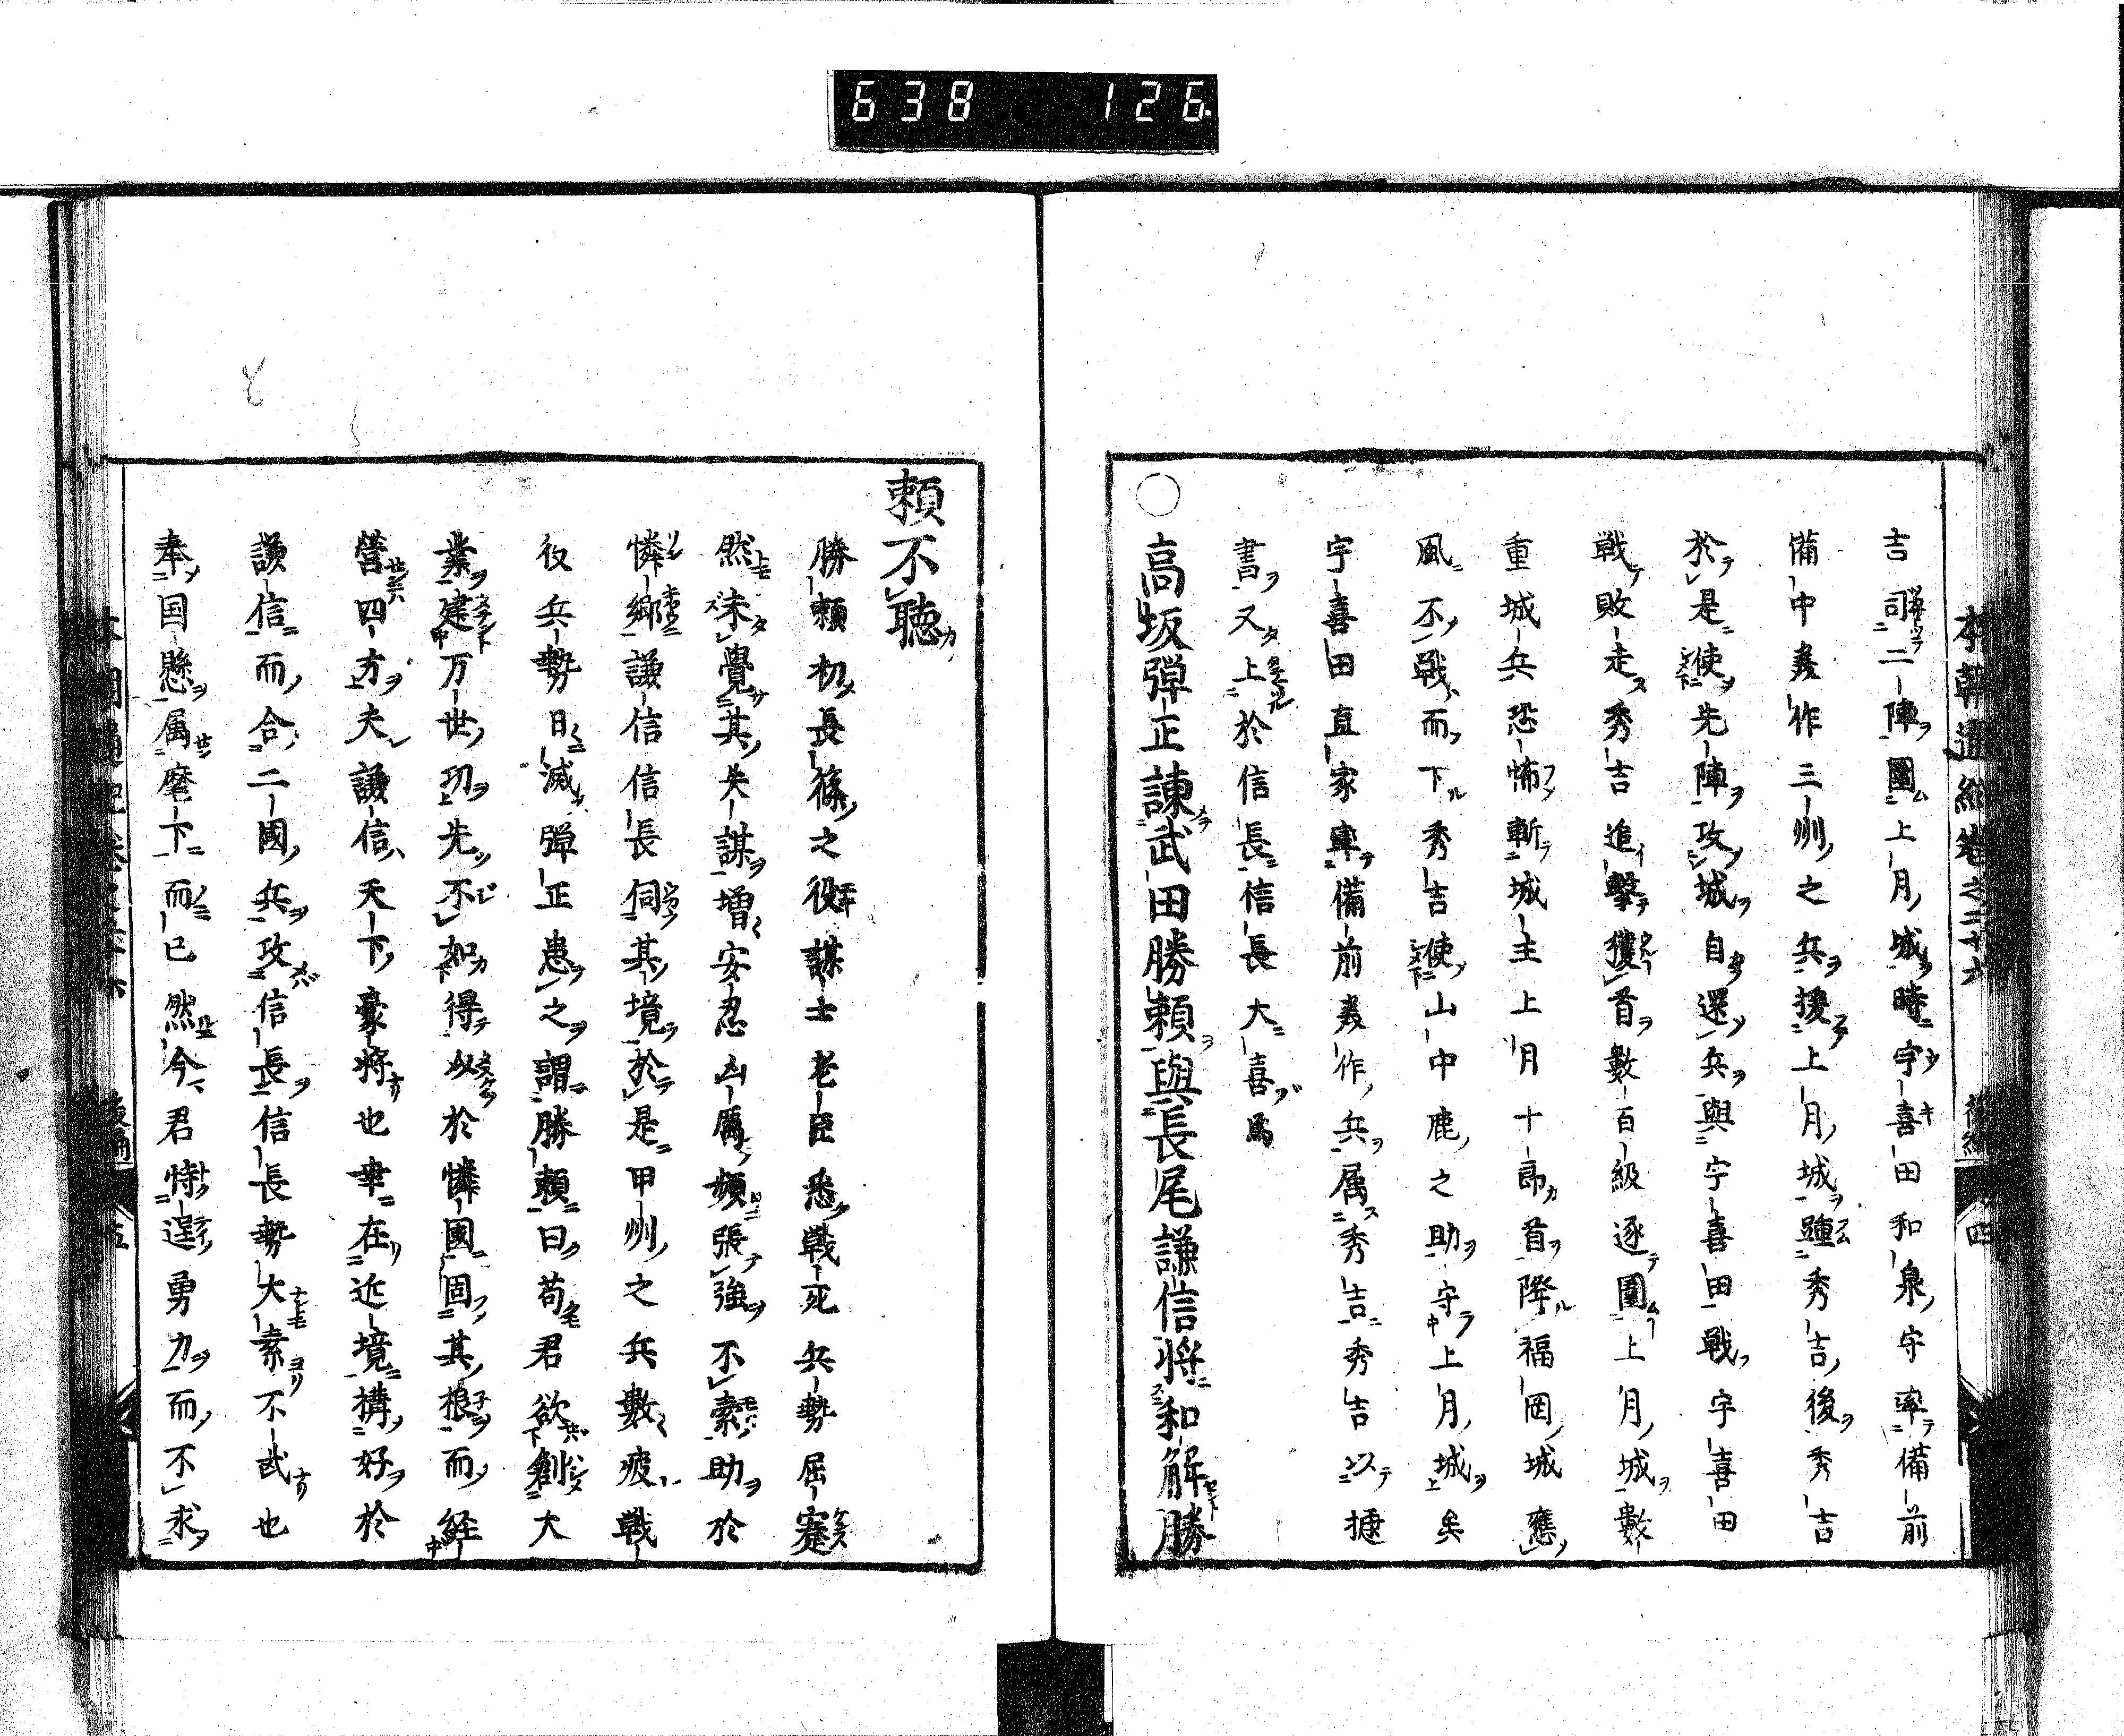 638 126
本朝通紀卷之二十六 後編 四
吉司二陣圍上月城時宇喜田和泉守率備前
備中美作三州之兵援上月城踵秀吉後秀吉
於是使先陣攻城自還兵與宇喜田戰宇喜田
戰敗走秀吉追擊獲首數百級逐圍上月城數
重城兵恐怖斬城主上月十郎首降福岡城應
風不戰而下秀吉使山中鹿之助守上月城矣
宇喜田直家率備前美作兵属秀吉秀吉以捷
書又上於信長信長大喜焉
○高坂彈正諫武田勝頼與長尾謙信將和解勝
頼不聽
勝頼初長篠之役謀士老臣悉戰死兵勢屈蹇
然未覺其失謀增安忍凶厲頻張強不索助於
憐鄉謙信信長伺其境於是甲州之兵數疲戰
役兵勢日減彈正患之謂勝頼曰苟君欲創大
業建万世功先不如得以於憐國固其根而經
營四方夫謙信天下豪將也幸在近境構好於
謙信而合二國兵攻信長信長勢大素不武也
奉国懸属麾下而已然今君恃逞勇力而不求